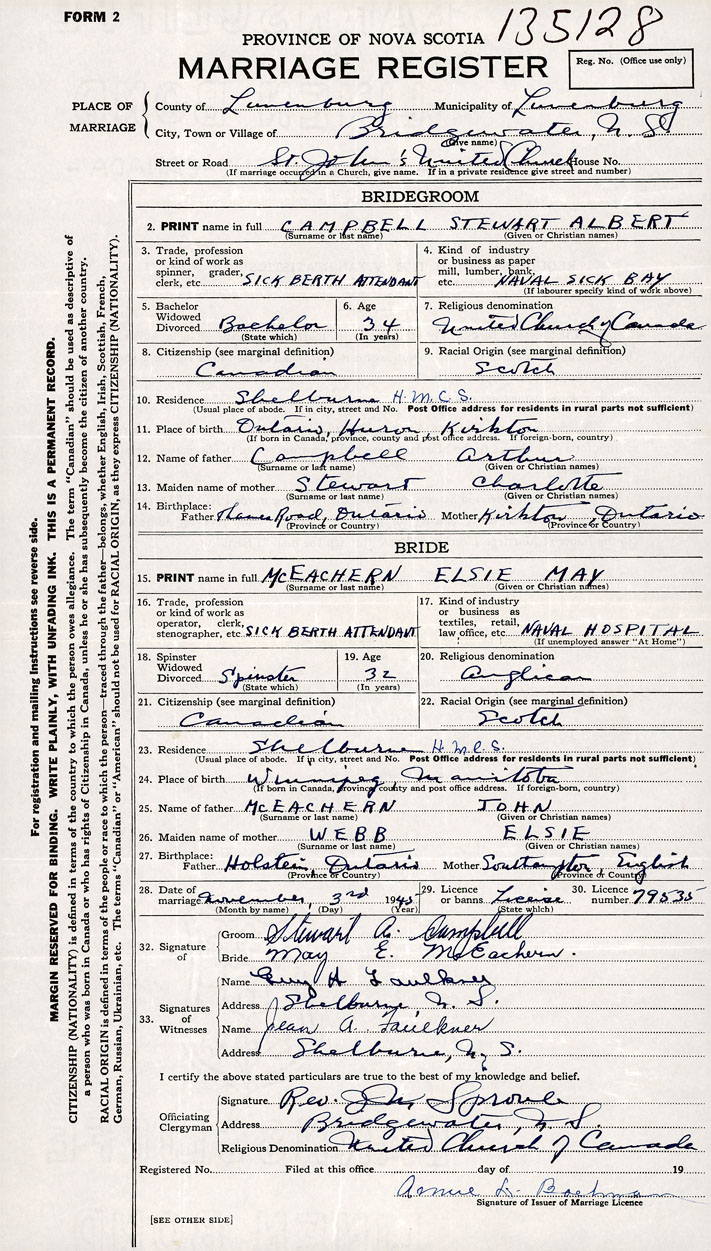 FORM 2
135128
PROVINCE OF NOVA SCOTIA
MARRIAGE REGISTER
Reg. No. (Office use only)
PLACE OF MARRIAGE
County of Lunenburg Municipality of Lunenburg
City, Town or Village of Bridgewater, N.S.
(Give name)
Street or Road St. John's United Church House No.
(If marriage occured in a Church, give name. If in a private residence give street and number)
BRIDEGROOM
2. PRINT name in full CAMPBELL STEWART ALBERT
(Surname or last name) (Given or Christian names)
3. Trade, profession or kind of work as spinner, grader, clerk, etc. SICK BERTH ATTENDANT
4. Kind of industry or business as paper mill, lumber, bank, etc. NAVAL SICK BAY
(If labourer specify kind of work above)
5. Bachelor Widowed Divorced Bachelor
(State which)
6. Age 34
(In years)
7. Religious denomination
United Church of Canada
8. Citizenship (see marginal definition)
Canadian
9. Racial Origin (see marginal definition)
Scotch
10. Residence Shelburne H.M.C.S.
(Usual place of abode. If in city, street and No. Post Office address for residents in rural parts not sufficient)
11. Place of birth Ontario, Huron, Kirkton
(If born in Canada, province, county and post office address. If foreign-born, country)
12. Name of father Campbell Arthur
(Surname or last name) (Given or Christian names)
13. Maiden name of mother Stewart Charlotte
(Surname or last name) (Given or Christian names)
14. Birthplace:
Father Thames Road, Ontario Mother Kirkton, Ontario
(Province or Country) (Province or Country)
BRIDE
15. PRINT name in full McEACHERN ELSIE MAY
(Surname or last name) (Given or Christian names)
16. Trade, profession or kind of work as operator, clerk, stenographer, etc. SICK BERTH ATTENDANT
17. Kind of industry or business as textiles, retail, law office, etc. NAVAL HOSPITAL
(If unemployed answer "At Home")
18. Spinster Widowed Divorced Spinster
(State which)
19. Age 32
(In years)
20. Religious denomination
Anglican
21. Citizenship (see marginal definition)
Canadian
22. Racial Origin (see marginal definition)
Scotch
23. Residence Shelburne H.M.C.S.
(Usual place of abode. If in city, street and No. Post Office address for residents in rural parts not sufficient)
24. Place of birth Winnipeg, Manitoba
(If born in Canada, province, county and post office address. If foreign-born, country)
25. Name of father McEACHERN JOHN
(Surname or last name) (Given or Christian names)
26. Maiden name of mother WEBB ELSIE
(Surname or last name) (Given or Christian names)
27. Birthplace:
Father Holstein, Ontario Mother Southampton, English
(Province or Country) (Province or Country)
28. Date of marriage November, 3rd 1945
(Month by name) (Day) (Year)
29. Licence or banns License
(State which)
30. Licence number 79535
32. Signature of
Groom Stewart A. Campbell
Bride May E. McEachern.
33. Signatures of Witnesses
Name Guy H Faulkner
Address Shelburne N.S.
Name Jean A. Faulkner
Address Shelburne, N.S.
I certify the above stated particulars are true to the best of my knowledge and belief.
Officiating Clergyman
Signature Rev. J.M. Sproule
Address Bridgewater, N.S.
Religious Denomination United Church of Canada
Registered No. Filed at this office day of 19
Signature of Issuer of Marriage Licence
[SEE OTHER SIDE]
For registration and mailing instructions see reverse side.
MARGIN RESERVED FOR BINDING. WRITE PLAINLY, WITH UNFADING INK. THIS IS A PERMANENT RECORD.
CITIZENSHIP (NATIONALITY) is defined in terms of the country to which the person owes allegiance. The term "Canadian" should be used as descriptive of
a person who was born in Canada or who has rights of Citizenship in Canada, unless he or she has subsequently become the citizen of another country.
RACIAL ORIGIN is defined in terms of the people or race to which the person—traced through the father—belongs, whether English, Irish, Scottish, French,
German, Russian, Ukrainian, etc. The terms "Canadian" or "American" should not be used for RACIAL ORIGIN, as they express CITIZENSHIP (NATIONALITY).